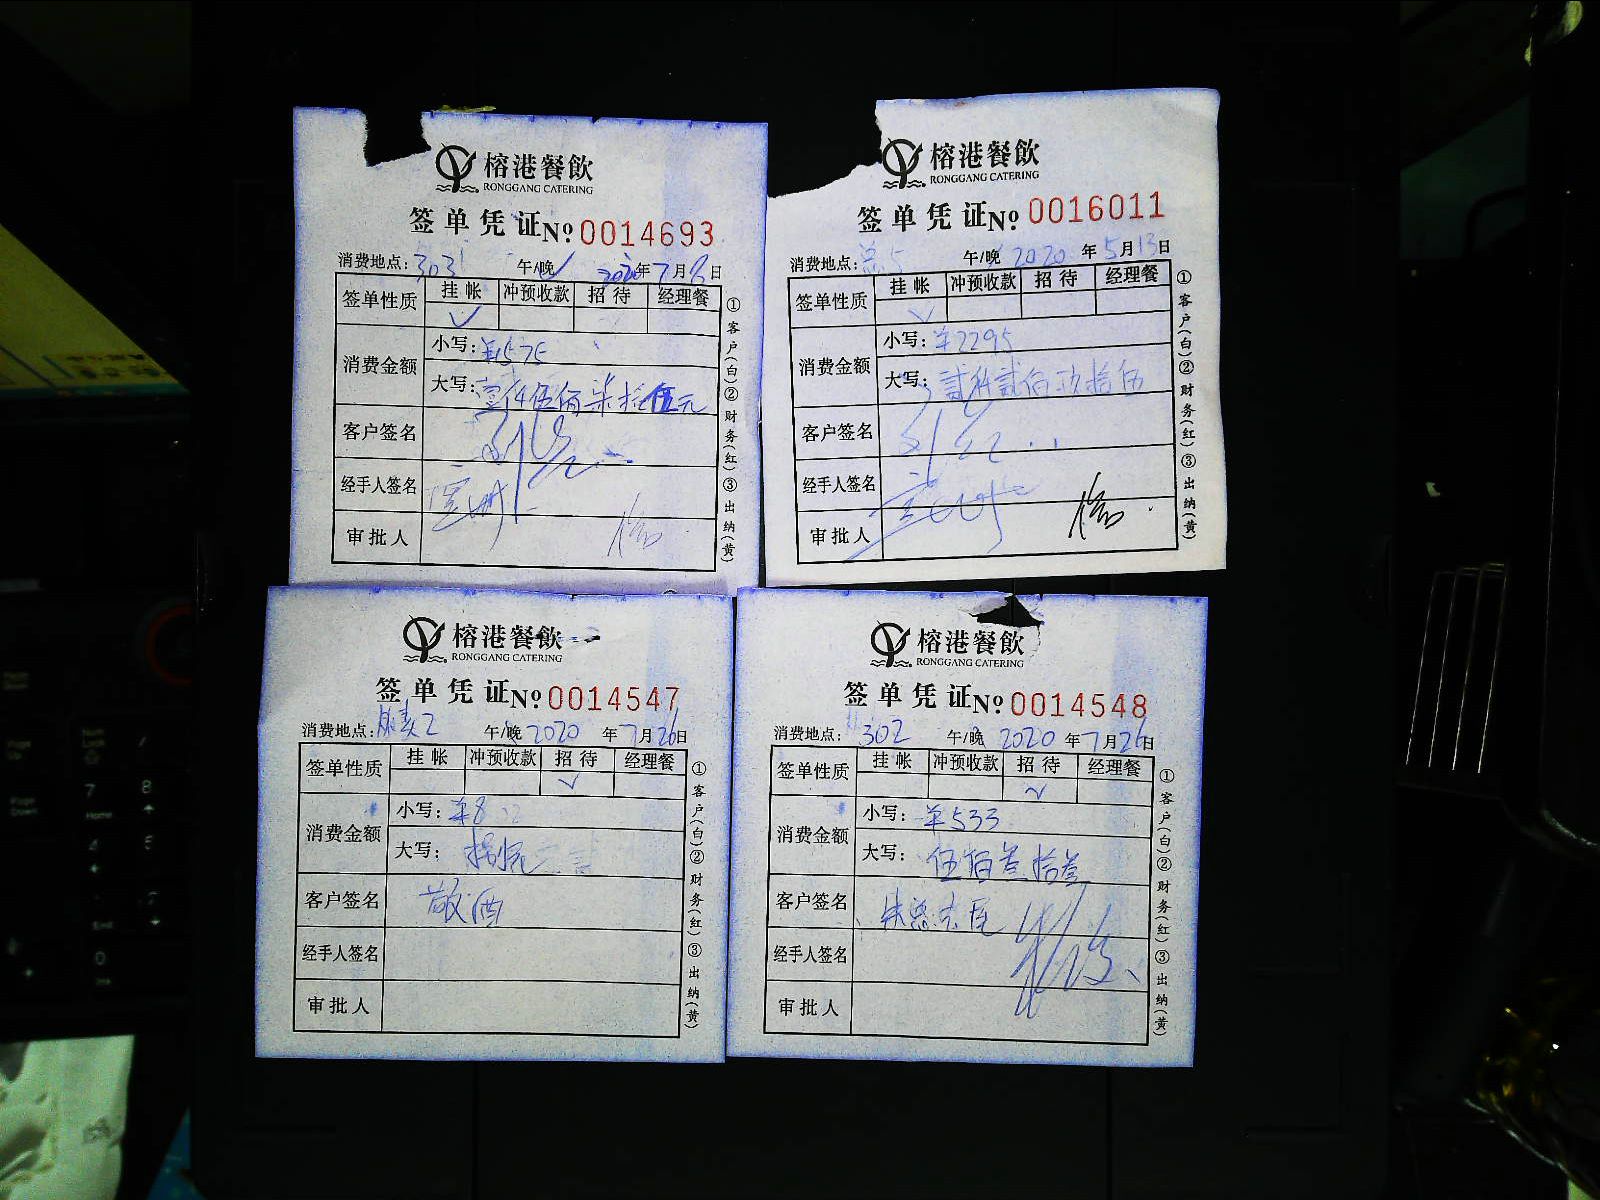 榕港餐飲
RONGGANG CATERING
签单凭证 № 0014693
消费地点: 303 午/晚 2020年7月8日
签单性质 挂帐 冲预收款 招待 经理餐
消费金额 小写: ¥1575
大写: 壹仟伍佰柒拾伍元
客户签名
经手人签名
审批人
①客户(白)②财务(红)③出纳(黄)
榕港餐飲
RONGGANG CATERING
签单凭证 № 0016011
消费地点: 午/晚 2020年5月13日
签单性质 挂帐 冲预收款 招待 经理餐
消费金额 小写: ¥2295
大写: 贰仟贰佰玖拾伍
客户签名
经手人签名
审批人
①客户(白)②财务(红)③出纳(黄)
榕港餐飲
RONGGANG CATERING
签单凭证 № 0014547
消费地点: 午/晚 2020年7月26日
签单性质 挂帐 冲预收款 招待 经理餐
消费金额 小写: ¥8
大写: 捌
客户签名 敬酒
经手人签名
审批人
①客户(白)②财务(红)③出纳(黄)
榕港餐飲
RONGGANG CATERING
签单凭证 № 0014548
消费地点: 302 午/晚 2020年7月26日
签单性质 挂帐 冲预收款 招待 经理餐
消费金额 小写: ¥533
大写: 伍佰叁拾叁
客户签名
经手人签名
审批人
①客户(白)②财务(红)③出纳(黄)